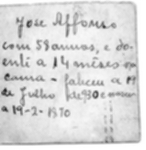 José Affonso
com 58 annos, e do-
enti a 14 mêses na
cama - faleceu a 19
de Julho de 930 e
a 19-2-1870